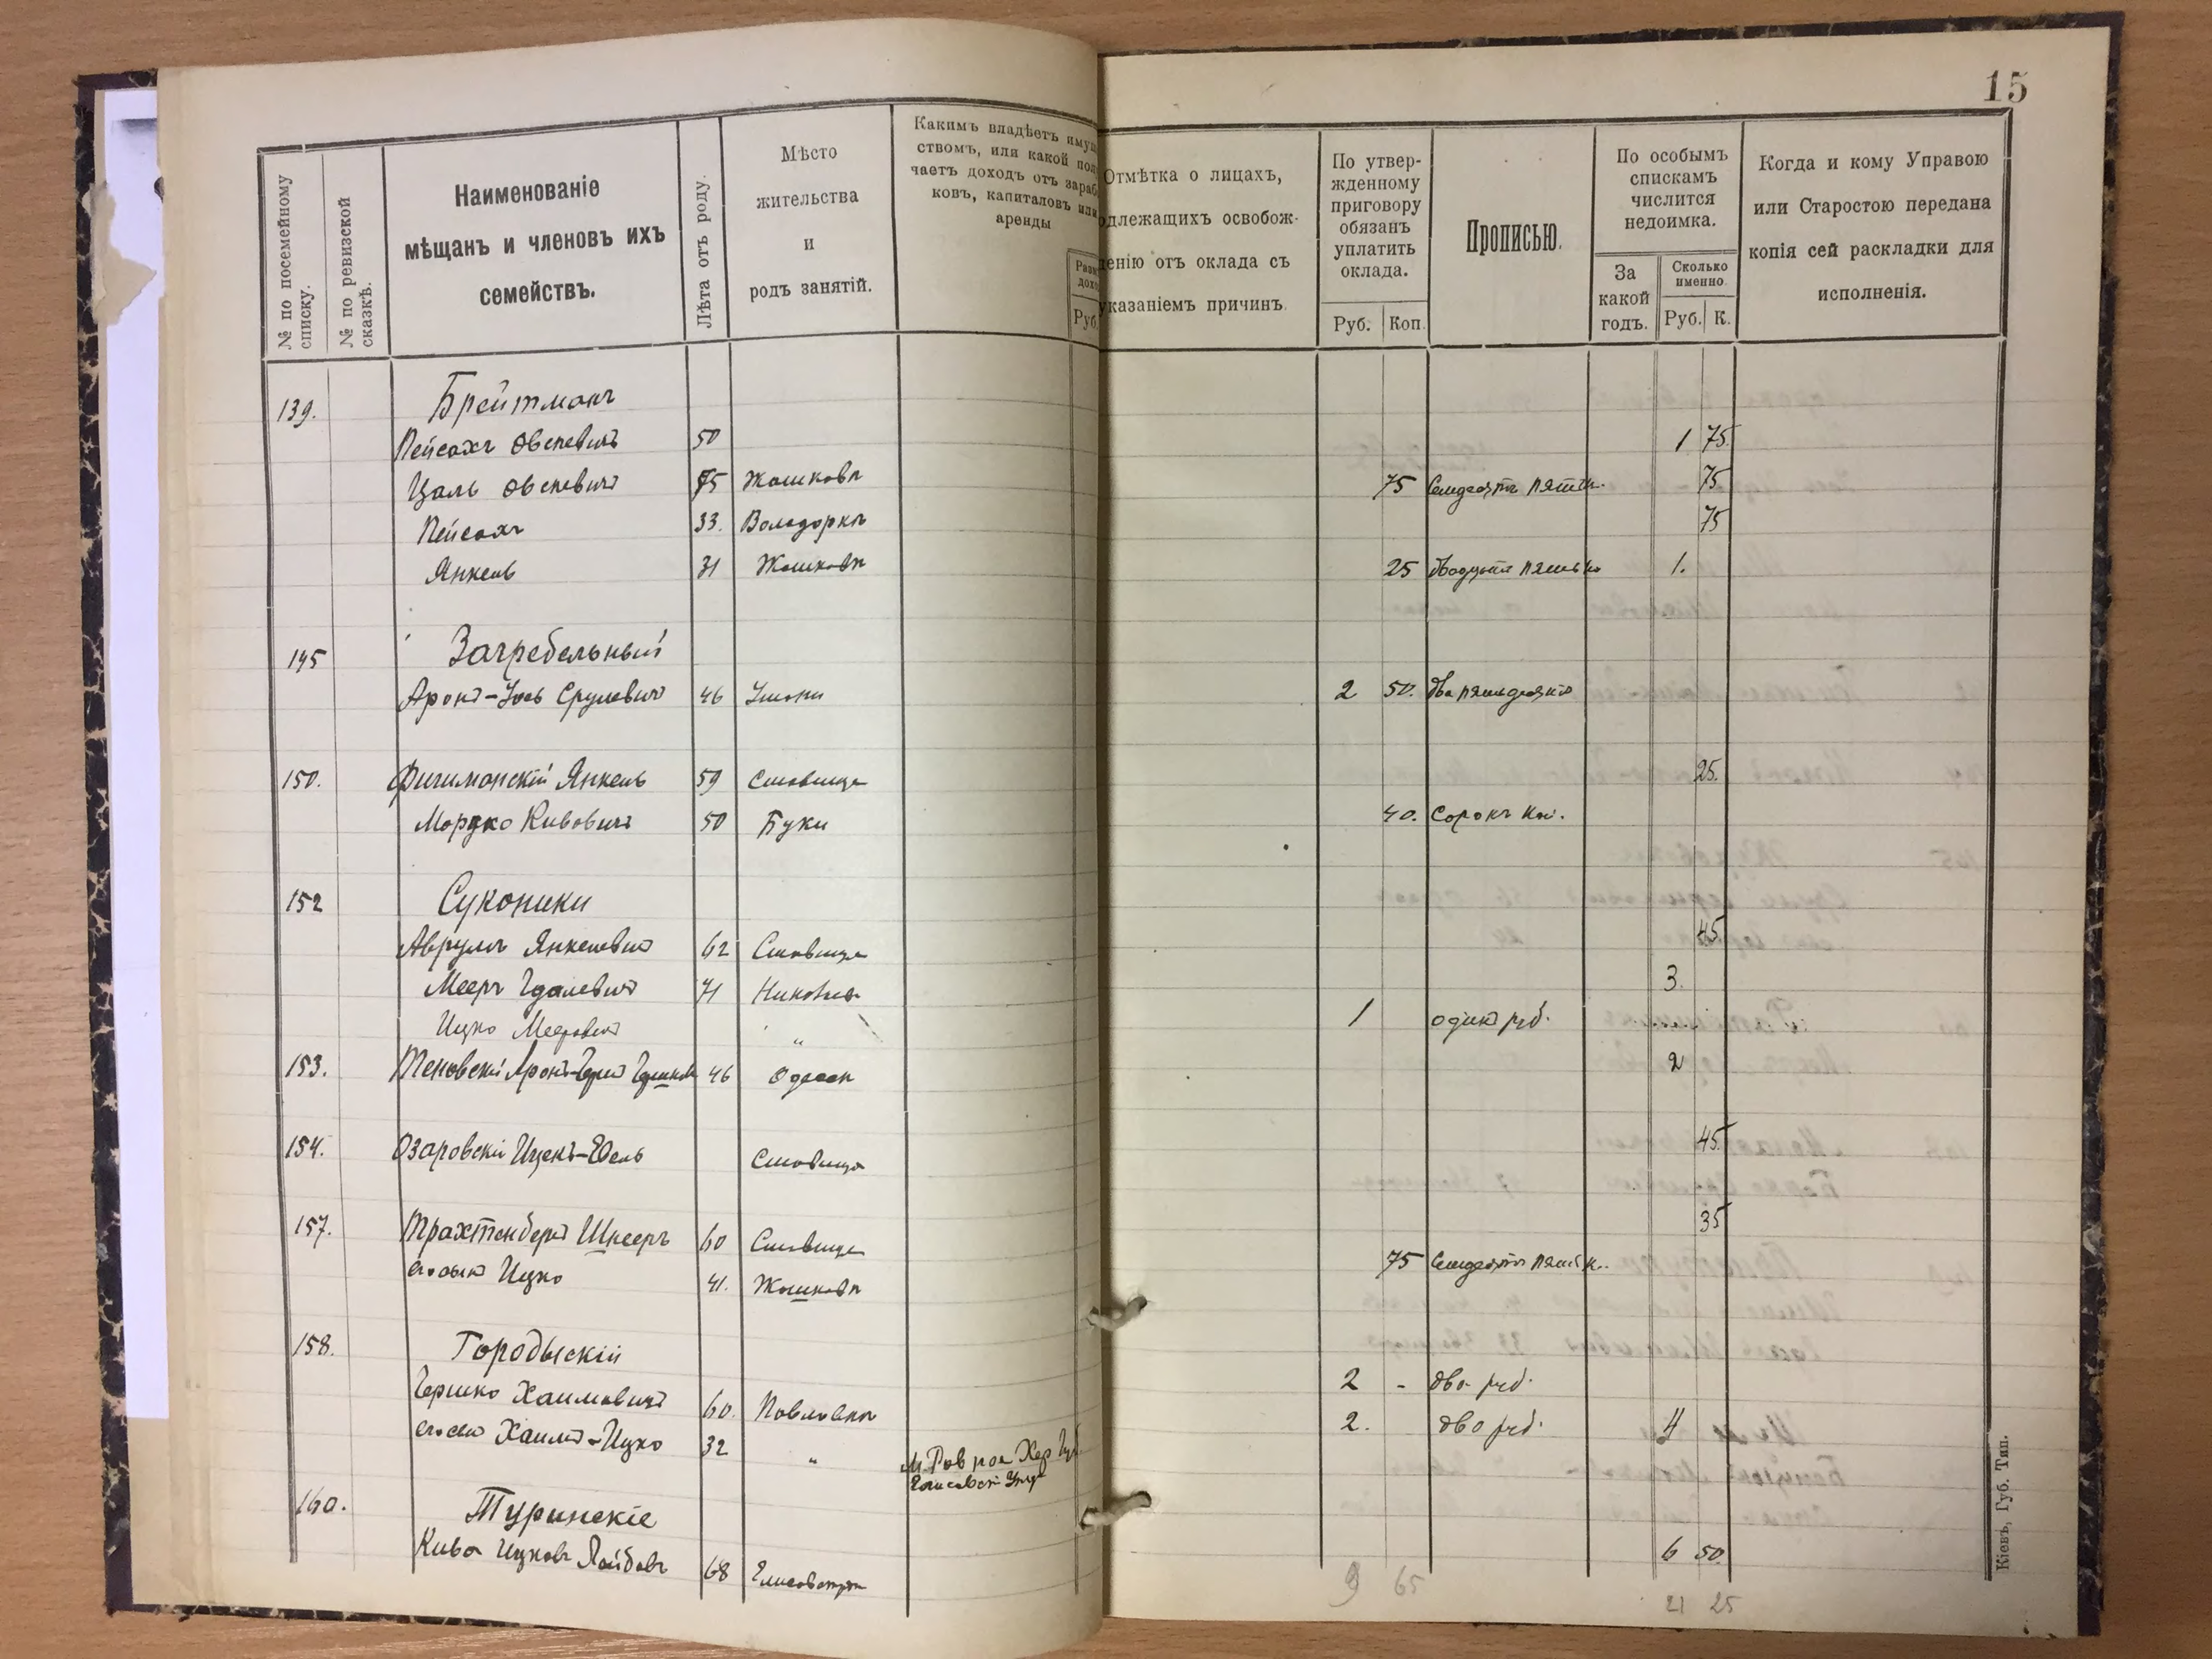 15
№ по посемейному списку.
№ по ревизской сказкѣ.
Наименованіе
мѣщанъ и членовъ ихъ
семействъ.
Лѣта отъ роду.
Мѣсто
жительства
и
родъ занятій.
Какимъ владѣетъ имущ
ствомъ, или какой пол
чаетъ доходъ отъ зараб
ковъ, капиталовъ или
аренды
Разм
дохо
Руб.
Отмѣтка о лицахъ,
одлежащихъ освобож-
денію отъ оклада съ
указаніемъ причинъ.
По утвер-
жденному
приговору
обязанъ
уплатить
оклада.
Руб. Коп.
Прописью.
По особымъ
спискамъ
числится
недоимка.
За
какой
годъ.
Сколько
именно.
Руб. К.
Когда и кому Управою
или Старостою передана
копія сей раскладки для
исполненія.
139. Брейтманъ
Пейсахъ Овсеевичъ 50 1 75
Цаль Овсеевичъ 75 Жашковъ 75 Семдесятъ пять к. 75
Пейсахъ 33. Володарка 75
Янкель 31 Жашковъ 25 Двадцать пять к. 1.
145 Загребельный
Аронъ-Іось Срулевичъ 46 Умань 2 50. Два пятьдесятъ
150. Фичиманскій Янкель 59 Ставище 25.
Мордко Кивовичъ 50 Буки 40. Сорокъ коп.
152 Суконики
Аврумъ Янкелевичъ 62 Ставище 45
Мееръ Гдалевичъ 71 Николаев 3.
Ицко Мееровичъ " 1 один руб.
153. Теновскій Аронъ-Герш 46 Одесса 2
154. Озаровскій Ицекъ-Юель Ставище 45.
157. Трахтенберг Шнееръ 60 Ставище 35
его сынъ Ицко 41. Жашковъ 75 Семдесятъ пять к.
158. Городыскій
Гершко Хаимовичъ 60. Павловка 2 - два руб.
его сын Хаимъ-Ицко 32 " М. Ровное Хер Губ 2. два руб. 4
Елисавет Уезд
160. Туринскіе
Кива Ицковъ Лейбовъ 68 Елисаветгр 6 50
9 65 21 25
Кіевъ, Губ. Тип.